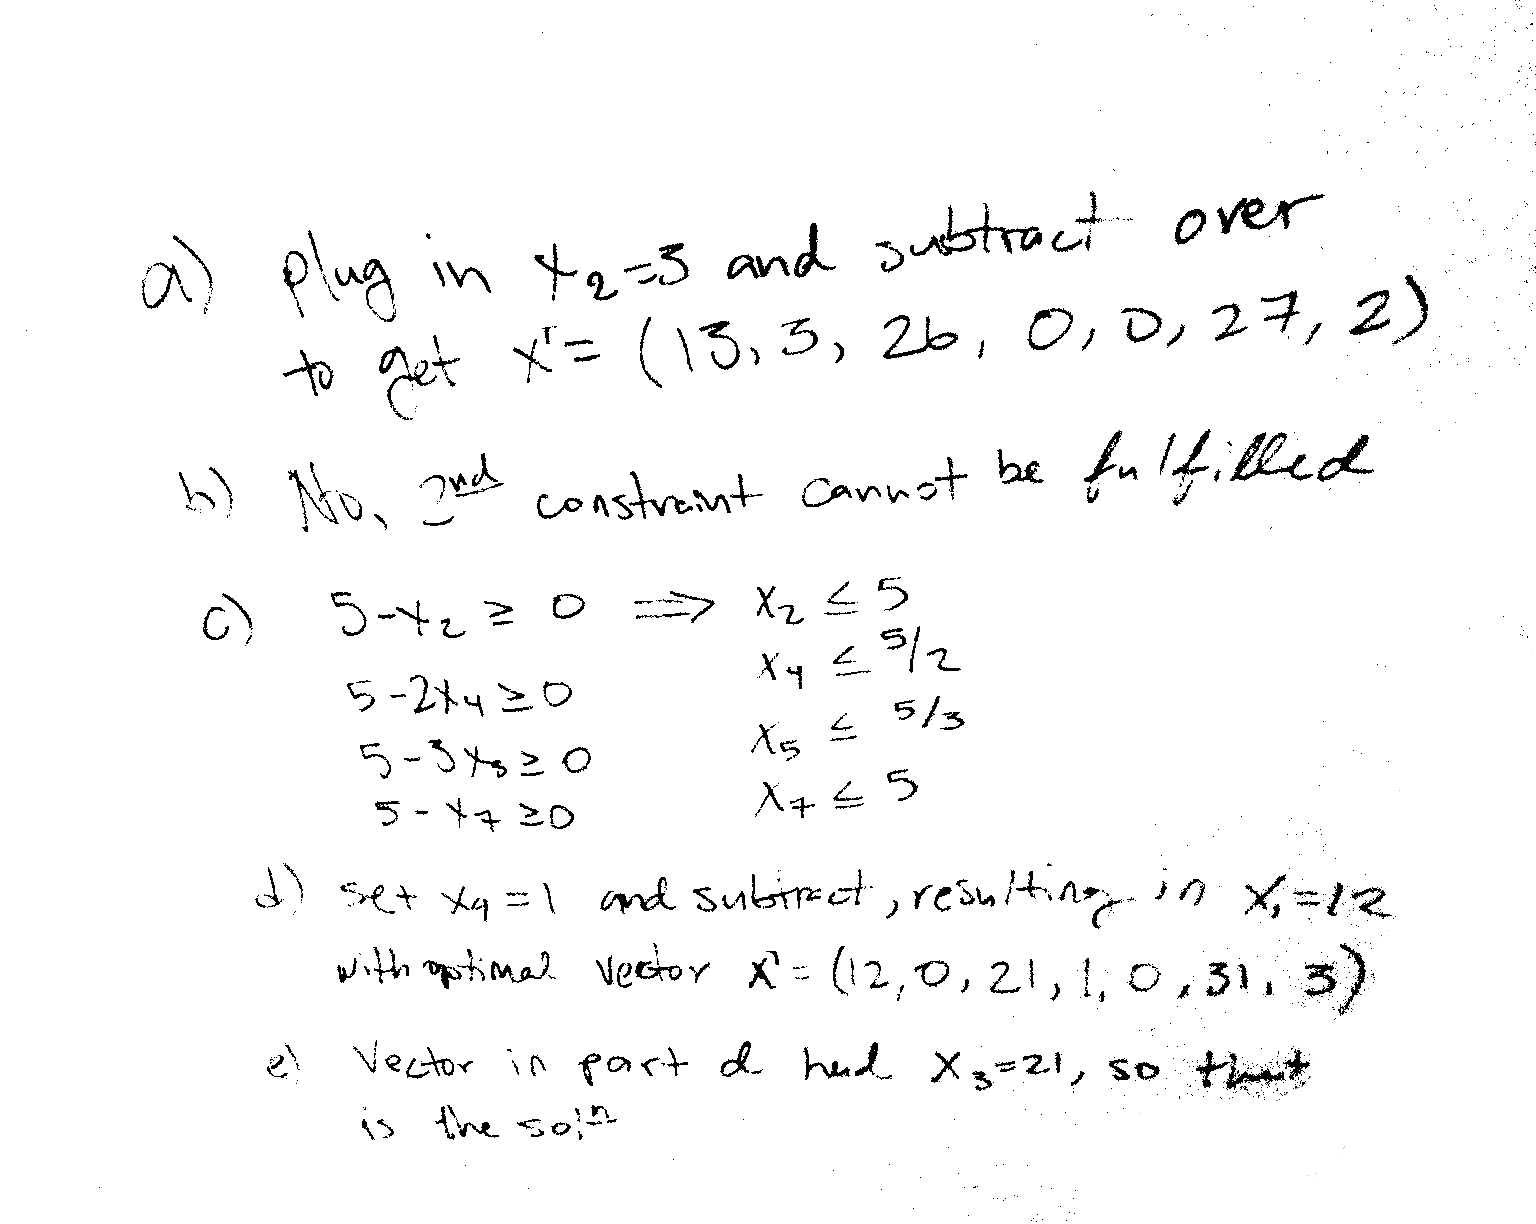 a) plug in x₂=3 and subtract over
to get x'= (13, 3, 26, 0, 0, 27, 2)
b) No, 2nd constraint cannot be fulfilled
c) 5-x₂ ≥ 0 ⟹ x₂ ≤ 5
x₄ ≤ 5/2
5-2x₄ ≥ 0
x₅ ≤ 5/3
5-3x₅ ≥ 0
x₇ ≤ 5
5-x₇ ≥ 0
d) set x₄=1 and subtract, resulting in x₁=12
with optimal vector x'= (12, 0, 21, 1, 0, 31, 3)
e) Vector in part d had x₃=21, so that
is the solⁿ